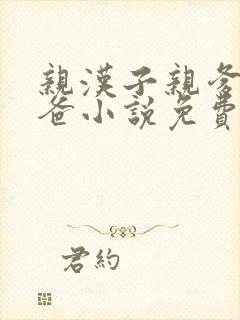 親漢子親爹
爸小說免費
君約